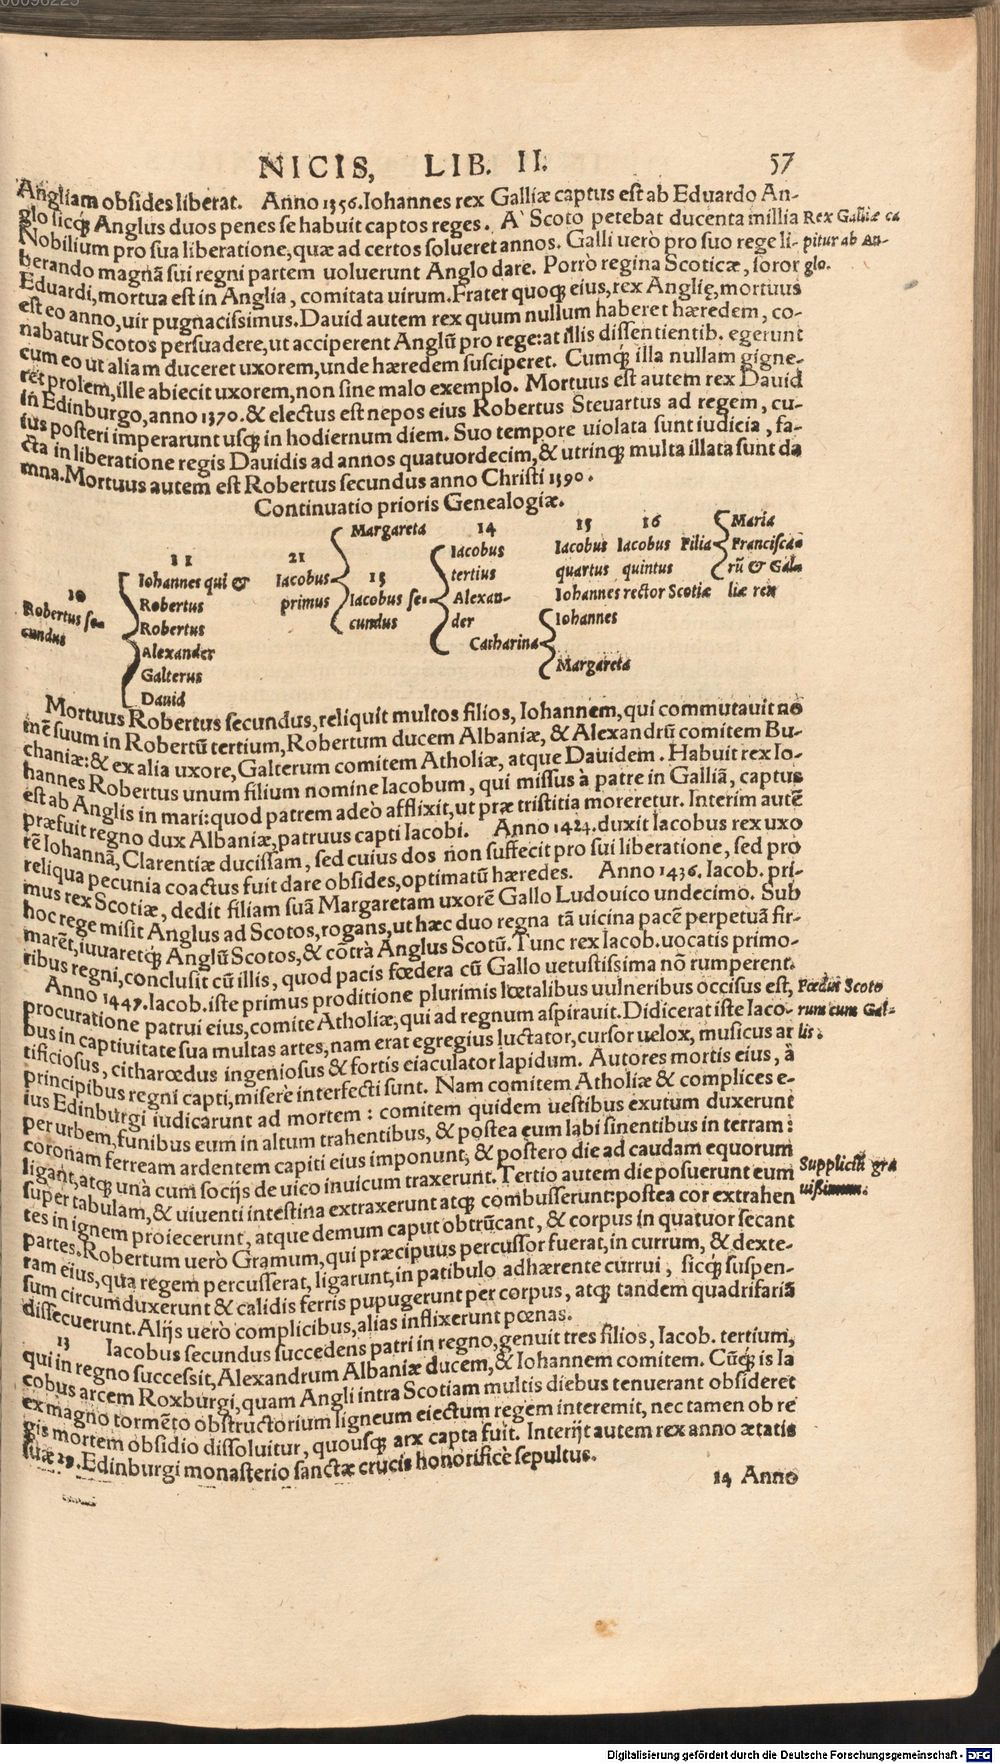 NICIS, LIB. II. 57
Angliam obsides liberat. Anno 1356. Iohannes rex Galliæ captus est ab Eduardo An-
glo sicq́; Anglus duos penes se habuit captos reges. A` Scoto petebat ducenta millia
Nobilium pro sua liberatione, quæ ad certos solueret annos. Galli uerò pro suo rege li-
berando magnã sui regni partem uoluerunt Anglo dare. Porrò regina Scoticæ, soror
Rex Galliæ ca
pitur ab An-
glo.
Eduardi, mortua est in Anglia, comitata uirum. Frater quoq; eius, rex Anglię, mortuus
est eo anno, uir pugnacissimus. Dauid autem rex quum nullum haberet hæredem, co-
nabatur Scotos persuadere, ut acciperent Anglũ pro rege: at illis dissentientib. egerunt
cum eo ut aliam duceret uxorem, unde hæredem susciperet. Cumq́; illa nullam gigne-
ret prolem, ille abiecit uxorem, non sine malo exemplo. Mortuus est autem rex Dauid
in Edinburgo, anno 1370. & electus est nepos eius Robertus Steuartus ad regem, cu-
ius posteri imperarunt usq; in hodiernum diem. Suo tempore uiolata sunt iudicia, fa-
cta in liberatione regis Dauidis ad annos quatuordecim, & utrinq; multa illata sunt da
mna. Mortuus autem est Robertus secundus anno Christi 1390.
Continuatio prioris Genealogiæ.
10
Robertus se-
cundus
11
Iohannes qui &
Robertus
Robertus
Alexander
Galterus
Dauid
21
Iacobus
primus
Margareta
13
Iacobus se-
cundus
14
Iacobus
tertius
Alexan-
der
Catharina
15 16
Iacobus Iacobus Filia
quartus quintus
Iohannes rector Scotiæ
Iohannes
Margareta
Maria
Franciscao
rũ & Gal-
liæ rex
Mortuus Robertus secundus, reliquit multos filios, Iohannem, qui commutauit no
mẽ suum in Robertũ tertium, Robertum ducem Albaniæ, & Alexandrũ comitem Bu-
chaniæ: & ex alia uxore, Galterum comitem Atholiæ, atque Dauidem. Habuit rex Io-
hannes Robertus unum filium nomine Iacobum, qui missus à patre in Galliã, captus
est ab Anglis in mari: quod patrem adeò afflixit, ut præ tristitia moreretur. Interim autẽ
præfuit regno dux Albaniæ, patruus capti Iacobi. Anno 1424. duxit Iacobus rex uxo
rẽ Iohannã, Clarentiæ ducissam, sed cuius dos non suffecit pro sui liberatione, sed pro
reliqua pecunia coactus fuit dare obsides, optimatũ hæredes. Anno 1436. Iacob. pri-
mus rex Scotiæ, dedit filiam suã Margaretam uxorẽ Gallo Ludouico undecimo. Sub
hoc rege misit Anglus ad Scotos, rogans, ut hæc duo regna tã uicina pacẽ perpetuã fir-
marẽt, iuuaretq́; Anglũ Scotos, & cõtrà Anglus Scotũ. Tunc rex Iacob. uocatis primo-
ribus regni, conclusit cũ illis, quod pacis fœdera cũ Gallo uetustissima nõ rumperent.
Anno 1447. Iacob. iste primus proditione plurimis lœtalibus uulneribus occisus est,
procuratione patrui eius, comite Atholiæ, qui ad regnum aspirauit. Didicerat iste Iaco-
bus in captiuitate sua multas artes, nam erat egregius luctator, cursor uelox, musicus ar
Fœdus Scoto
rum cum Gal-
lis.
tificiosus, citharœdus ingeniosus & fortis eiaculator lapidum. Autores mortis eius, à
principibus regni capti, miserè interfecti sunt. Nam comitem Atholiæ & complices e-
ius Edinburgi iudicarunt ad mortem: comitem quidem uestibus exutum duxerunt
per urbem, funibus eum in altum trahentibus, & postea eum labi sinentibus in terram:
coronam ferream ardentem capiti eius imponunt, & postero die ad caudam equorum
ligant, atq; unà cum socijs de uico inuicum traxerunt. Tertio autem die posuerunt eum
super tabulam, & uiuenti intestina extraxerunt atq; combusserunt: postea cor extrahen
Suppliciũ gra
uißimum.
tes in ignem proiecerunt, atque demum caput obtrũcant, & corpus in quatuor secant
partes. Robertum uerò Gramum, qui præcipuus percussor fuerat, in currum, & dexte-
ram eius, qua regem percusserat, ligarunt, in patibulo adhærente currui, sicq́; suspen-
sum circumduxerunt & calidis ferris pupugerunt per corpus, atq; tandem quadrifariã
dissecuerunt. Alijs uerò complicibus, alias inflixerunt pœnas.
13 Iacobus secundus succedens patri in regno, genuit tres filios, Iacob. tertium,
qui in regno successit, Alexandrum Albaniæ ducem, & Iohannem comitem. Cũq́; is Ia
cobus arcem Roxburgi, quam Angli intra Scotiam multis diebus tenuerant obsideret
ex magno tormẽto obstructorium ligneum eiectum regem interemit, nec tamen ob re
gis mortem obsidio dissoluitur, quousq; arx capta fuit. Interijt autem rex anno ætatis
suæ 29. Edinburgi monasterio sanctæ crucis honorificè sepultus.
14 Anno
Digitalisierung gefördert durch die Deutsche Forschungsgemeinschaft - DFG